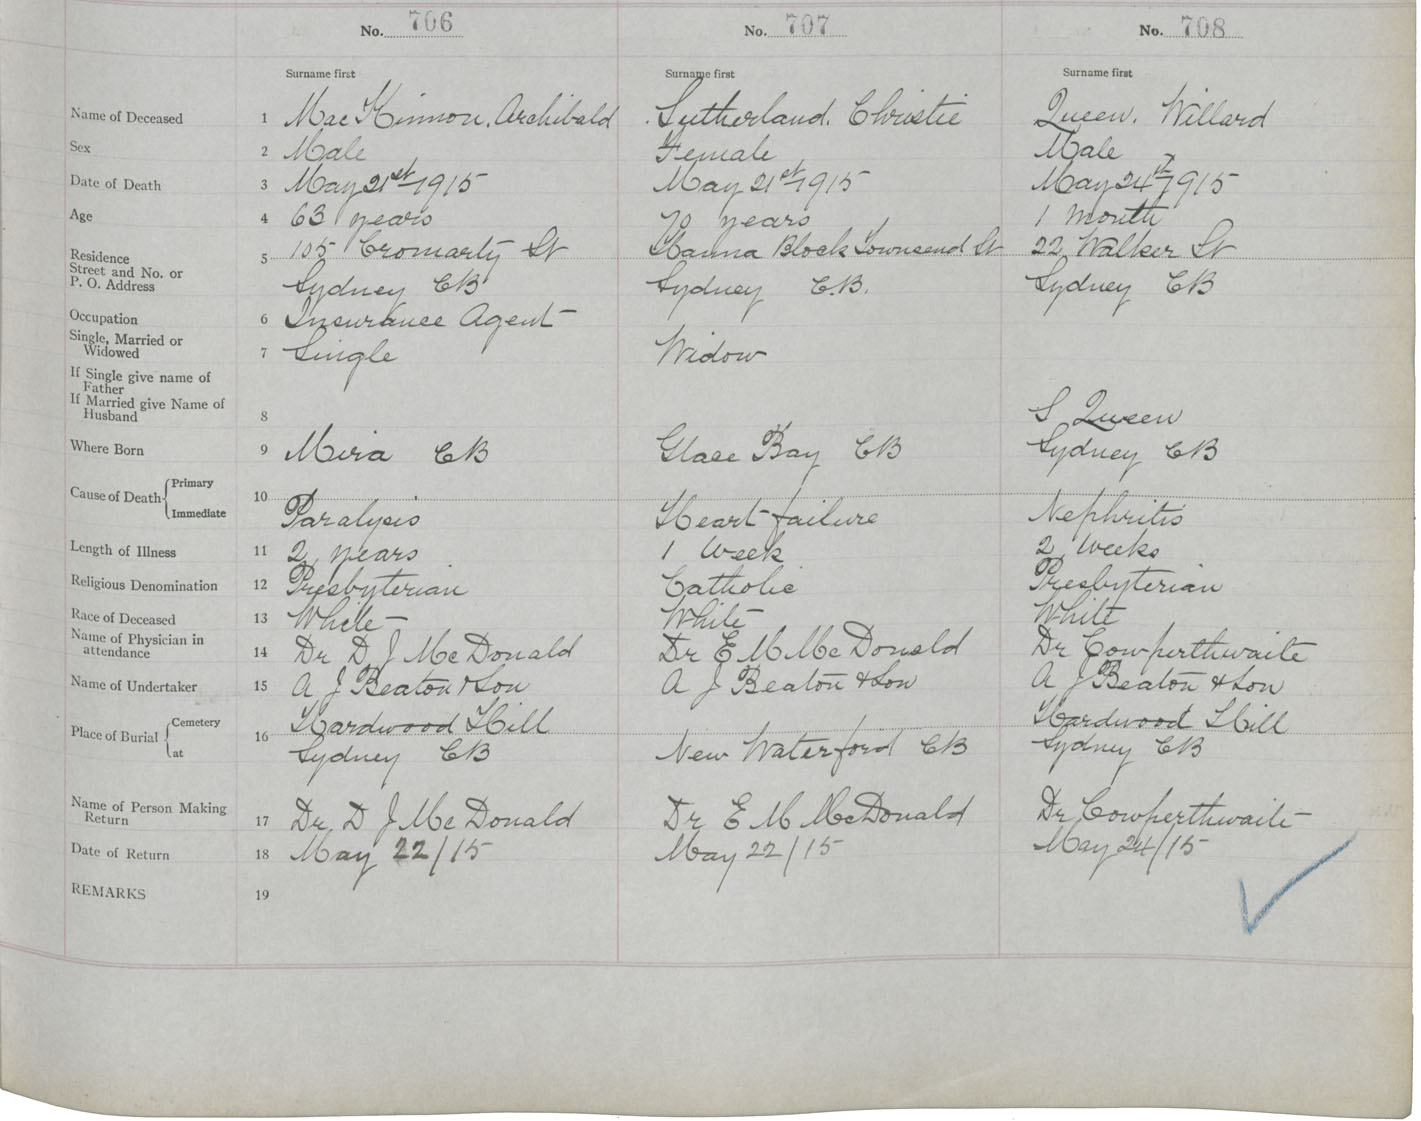 No. 706 No. 707 No. 708
Surname first Surname first Surname first
Name of Deceased 1 MacKinnon, Archibald Sutherland, Christie Queen, Willard
Sex 2 Male Female Male
Date of Death 3 May 21st 1915 May 21st 1915 May 24th 1915
Age 4 63 years 70 years 1 month
Residence 5 105 Cromarty St Hanna Block Townsend St 22 Walker St
Street and No. or
P. O. Address Sydney CB Sydney C.B. Sydney CB
Occupation 6 Insurance Agent
Single, Married or
Widowed 7 Single Widow
If Single give name of
Father
If Married give Name of
Husband 8 S Queen
Where Born 9 Mira CB Glace Bay CB Sydney CB
Cause of Death Primary 10
Immediate Paralysis Heart failure Nephritis
Length of Illness 11 2 years 1 Week 2 Weeks
Religious Denomination 12 Presbyterian Catholic Presbyterian
Race of Deceased 13 White White White
Name of Physician in
attendance 14 Dr D J McDonald Dr E M McDonald Dr Cowperthwaite
Name of Undertaker 15 A J Beaton & Son A J Beaton & Son A J Beaton & Son
Place of Burial Cemetery 16 Hardwood Hill Hardwood Hill
at Sydney CB New Waterford CB Sydney CB
Name of Person Making
Return 17 Dr D J McDonald Dr E M McDonald Dr Cowperthwaite
Date of Return 18 May 22/15 May 22/15 May 24/15
REMARKS 19